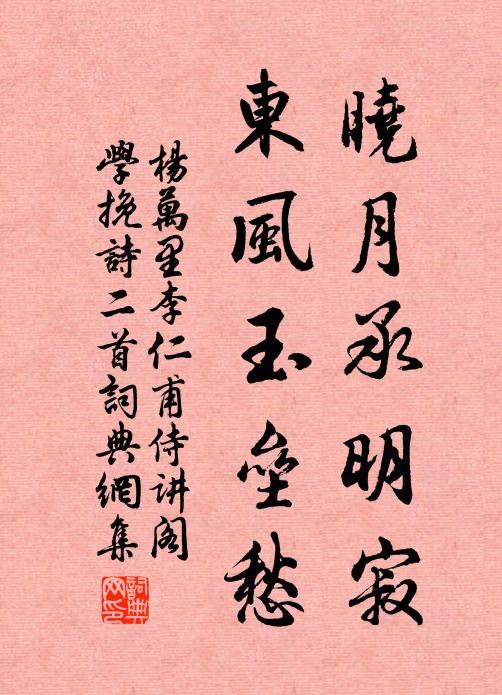 曉月承明寂
東風玉壘愁
楊萬里李仁甫侍讲阁
學挽詩二首詞典網集
詞典
网印